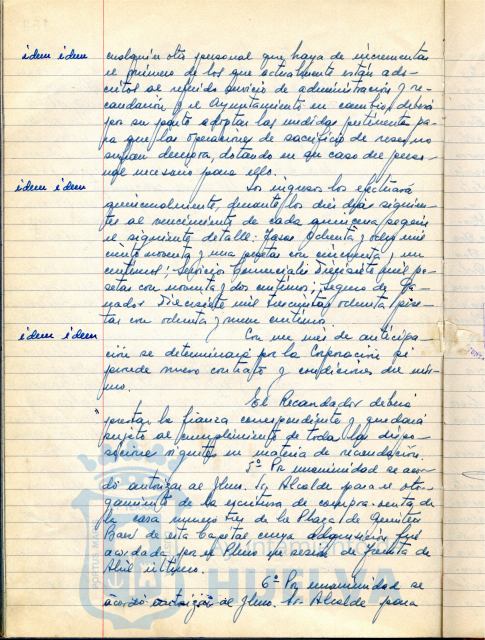 idem idem
cualquier otro personal que haya de incrementar
el número de los que actualmente están ads-
critos al referido servicio de administración y re-
caudación y el Ayuntamiento en cambio, deberá
por su parte adoptar las medidas pertinentes pa-
ra que las operaciones de sacrificio de reses, no
sufran demora, dotando en su caso del perso-
nal necesario para ello.
idem idem
Los ingresos los efectuará
quincenalmente, durante los diez días siguien-
tes al vencimiento de cada quincena según
el siguiente detalle: Tasas Ochenta y ocho mil
ciento noventa y una pesetas con cincuenta y un
céntimos; Servicios Comerciales Diecisiete mil pe-
setas con noventa y dos céntimos; Seguro de Ga-
nados Diecisiete mil trescientas ochenta pese-
tas con ochenta y nueve céntimos.
idem idem
Con un mes de anticipa-
ción se determinará por la Corporación si
procede nuevo contrato y condiciones del mis-
mo.
El Recaudador deberá
prestar la fianza correspondiente y quedará
sujeto al cumplimiento de todas las dispo-
siciones vigentes en materia de recaudación.
5º Por unanimidad se acor-
dó autorizar al Ilmo. Sr. Alcalde para el otor-
gamiento de la escritura de compra-venta de
la casa número tres de la Plaza de Quintero
Baez de esta Capital cuya adquisición fué
acordada por el Pleno en sesión de Treinta de
Abril último.
6º Por unanimidad se
acordó autorizar al Ilmo. Sr. Alcalde para
Ayuntamiento de
HUELVA